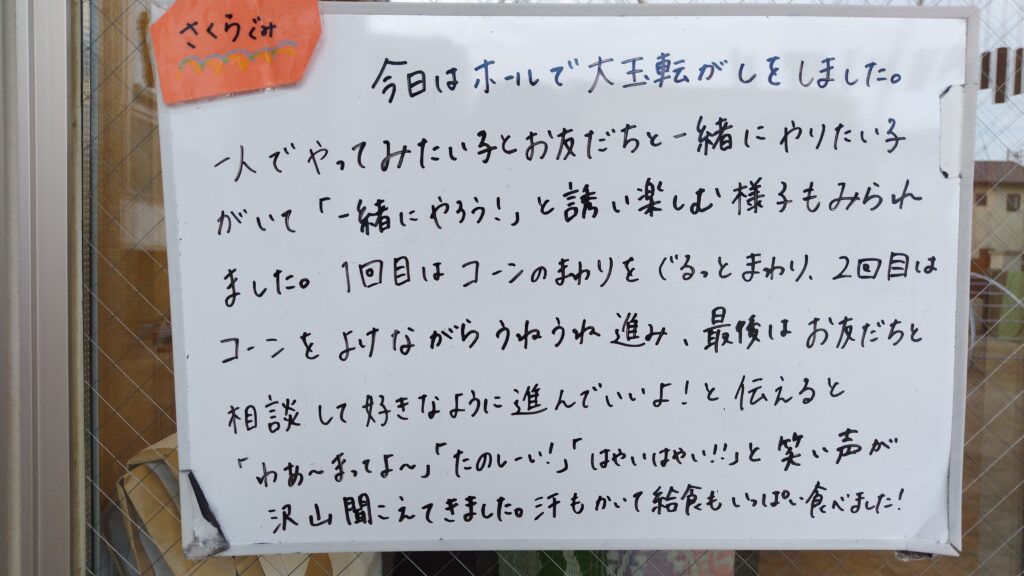 さくらぐみ
今日はホールで大玉転がしをしました。
一人でやってみたい子とお友だちと一緒にやりたい子
がいて「一緒にやろう!」と誘い楽しむ様子もみられ
ました。1回目はコーンのまわりをぐるっとまわり、2回目は
コーンをよけながらうねうね進み、最後はお友だちと
相談して好きなように進んでいいよ!と伝えると
「わあ〜まってよ〜」「たのしーい!」「はやいはやい!!」と笑い声が
沢山聞こえてきました。汗もかいて給食もいっぱい食べました!